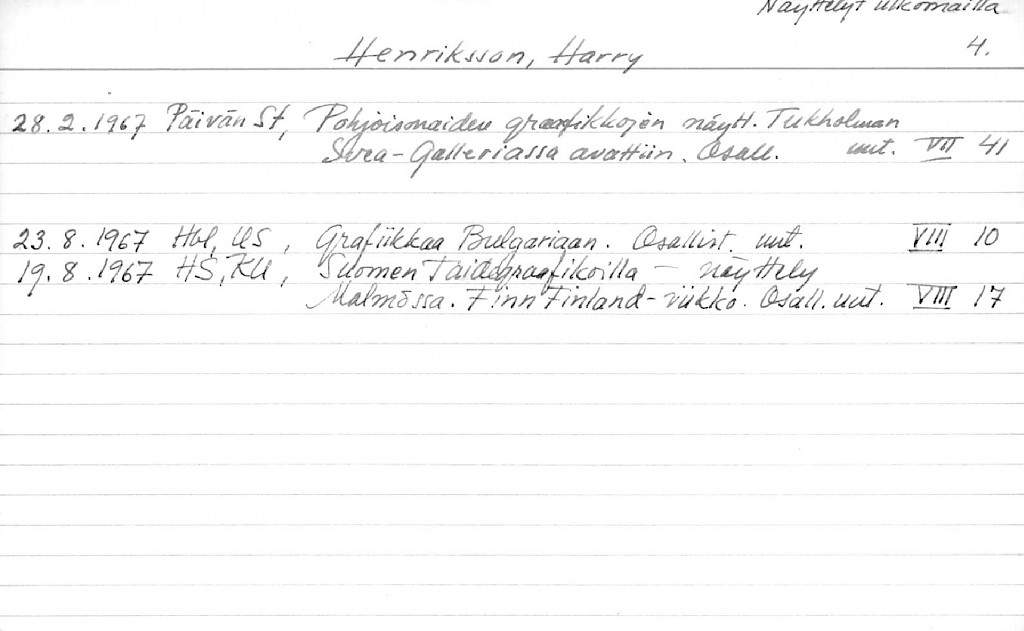 Näyttelyt ulkomailla
Henriksson, Harry 4.
28.2.1967 Päivän St, Pohjoismaiden graafikkojen näytt. Tukholman
Svea-Galleriassa avattiin. Osall. uut. VII 41
23.8.1967 Hbl, US, Grafiikkaa Bulgariaan. Osallist. uut. VIII 10
19.8.1967 HS, KU, Suomen Taidegraafikoilla - näyttely
Malmössa. Finn Finland-viikko. Osall. uut. VIII 17